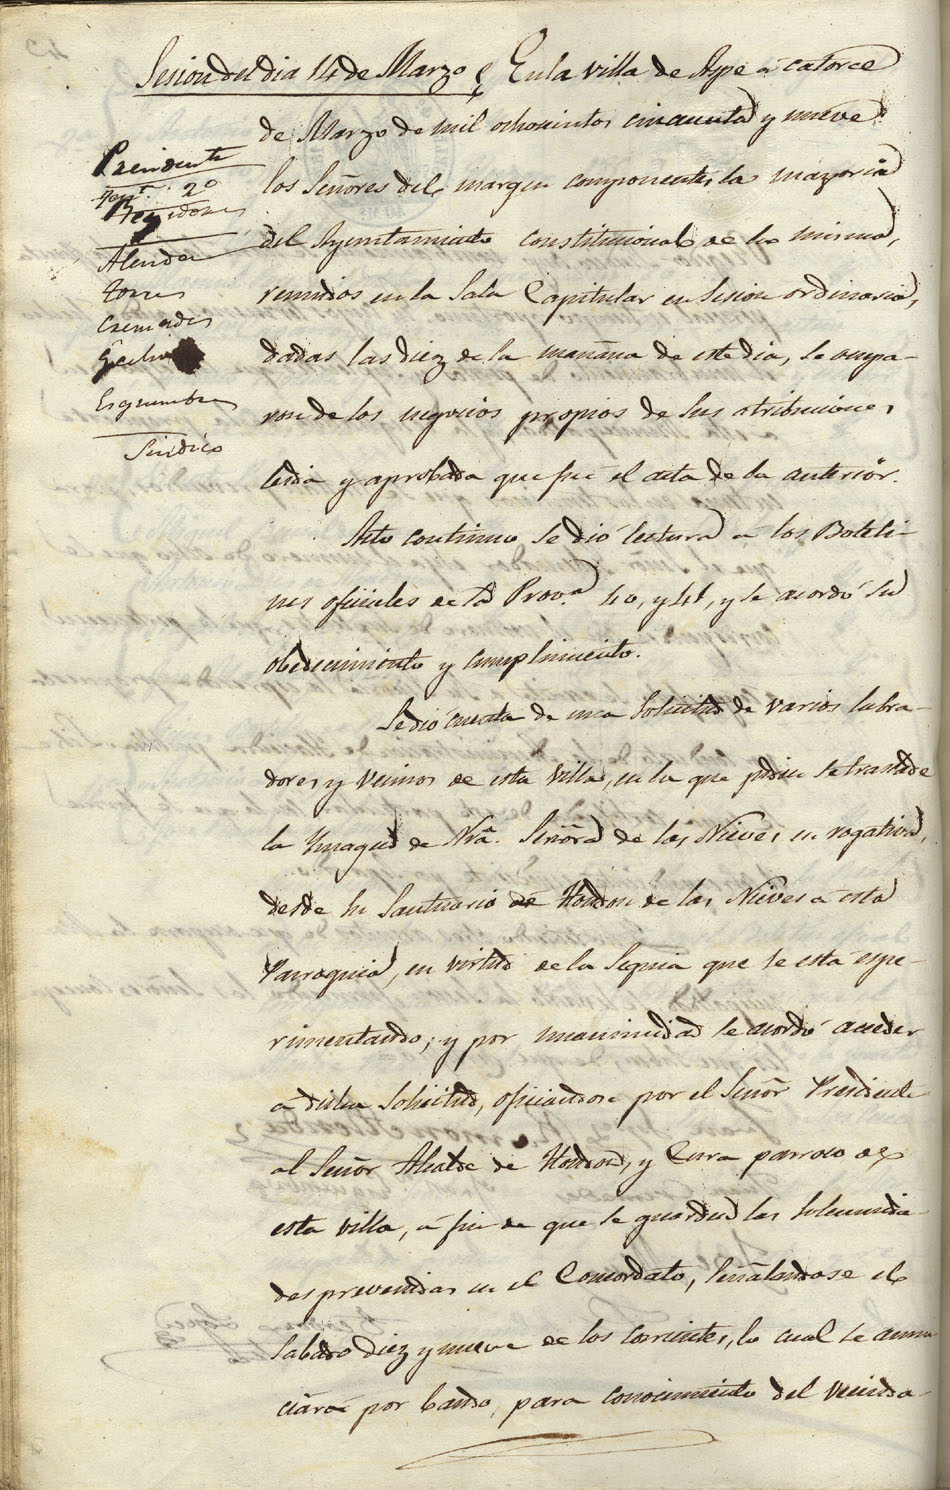 Sesion del dia 14 de Marzo En la villa de Aspe á catorce
de Marzo de mil ochocientos cincuenta y nueve
Presidente
Ten.te 2º
Regidores
Alenda
Torres
Cremades
Esquembre
Sindico
los Señores del margen componentes la mayoria
del Ayuntamiento constitucional de la misma,
reunidos en la Sala Capitular en sesion ordinaria,
dadas las diez de la mañana de este dia, se ocupa-
ron de los negocios propios de sus atribuciones,
leida y aprobada que fué el acta de la anterior.
Acto continuo se dió lectura á los Boleti-
nes oficiales de la Prov.a 40, y 41, y se acordó su
obedecimiento y cumplimiento.
Se dió cuenta de una solicitud de varios labra-
dores y vecinos de esta villa, en la que piden se traslade
la Ymagen de Ntra. Señora de las Nieves en rogativa,
desde su Santuario de Hondon de las Nieves á esta
Parroquia, en virtud de la sequia que se está espe-
rimentando; y por unanimidad se acordó acceder
á dicha solicitud, oficiandose por el Señor Presidente
al Señor Alcalde de Hondon, y Cura parroco de
esta villa, á fin de que se guarden las solemnida-
des prevenidas en el Concordato, señalandose el
sabado diez y nueve de los corrientes, lo cual se anun
ciará por bando, para conocimiento del vecinda-